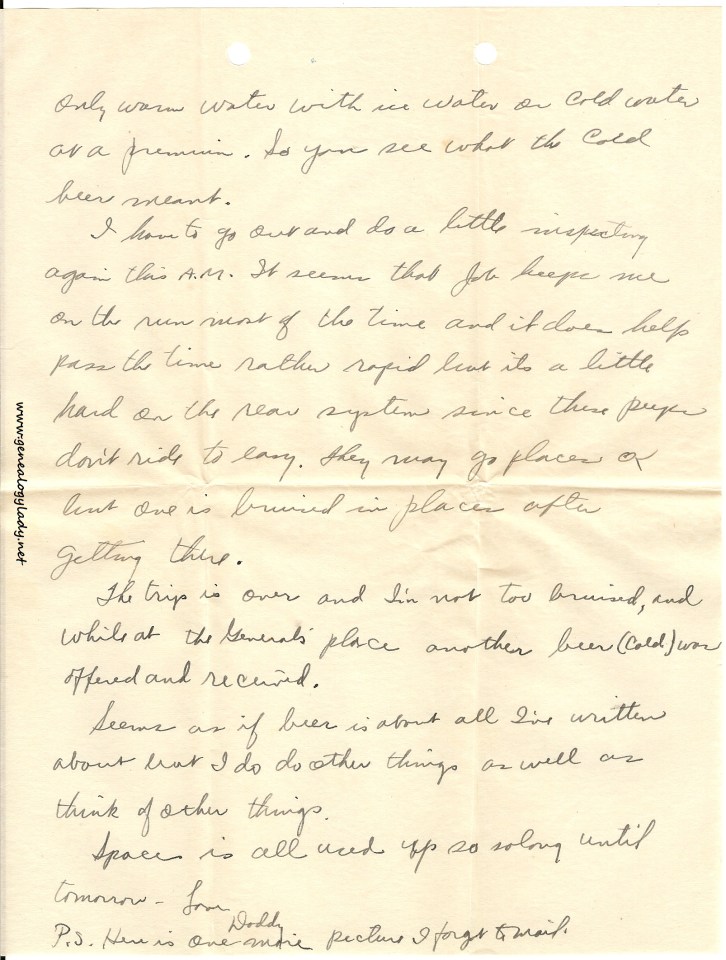 only warm water with ice water or cold water
at a premium. So you see what the cold
beer meant.
I have to go out and do a little inspecting
again this A.M. It seems that job keeps me
on the run most of the time and it does help
pass the time rather rapid but its a little
hard on the rear system since these peeps
don't ride to easy. They may go places
but one is bruised in places after
getting there.
The trip is over and I'm not too bruised, and
while at the General's place another beer (cold) was
offered and received.
Seems as if beer is about all I've written
about but I do do other things as well as
think of other things.
Space is all used up so solong until
tomorrow - Love
Daddy
P.S. Here is one more picture I forgot to mail.
www.genealogylady.net